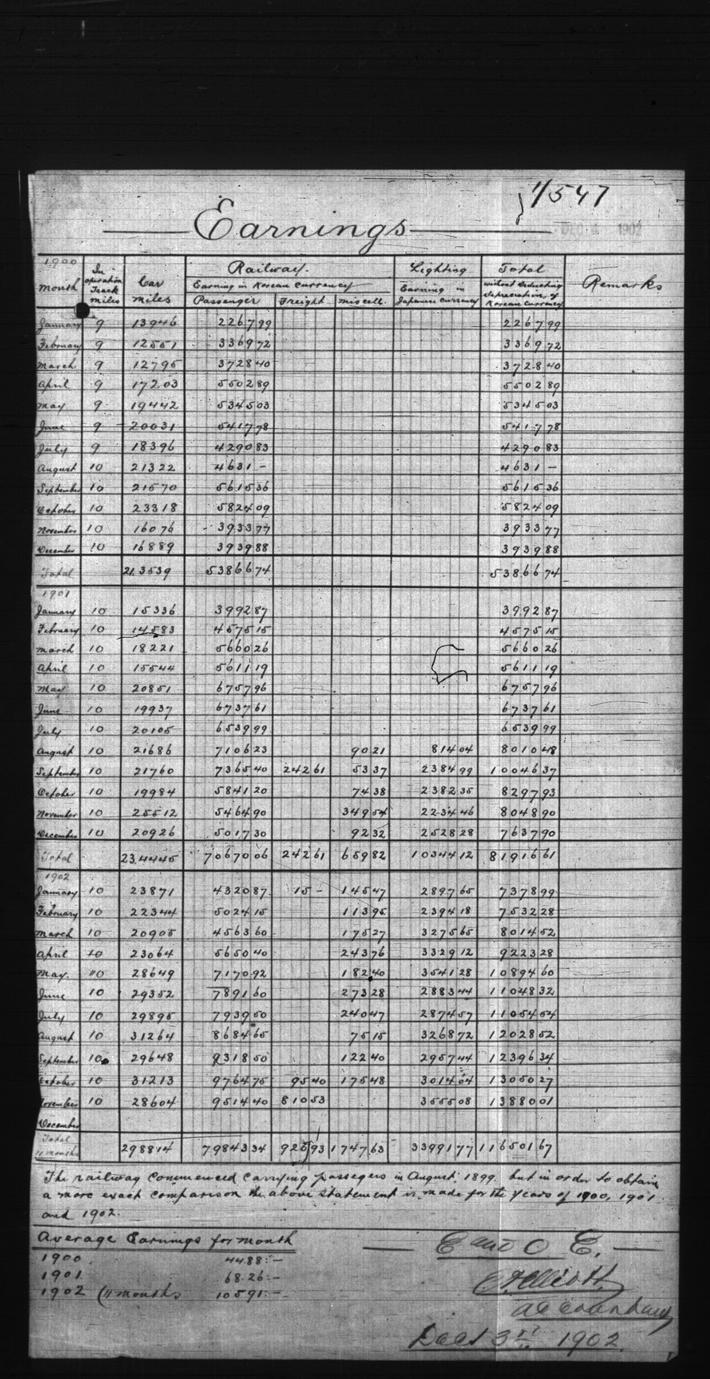 4547
Earnings
DEC 4 1902
1900 In operation Track miles Car miles Railway. Lighting Total Remarks
Month Earning in Korean Currency Earning in Japanese currency without deducting depreciation of Korean Currency
Passenger Freight Miscell.
January 9 13946 2267 99 2267 99
February 9 12551 3369 72 3369 72
March 9 12795 3728 40 3728 40
April 9 17203 5502 89 5502 89
May 9 19442 5345 03 5345 03
June 9 20031 5417 78 5417 78
July 9 18396 4290 83 4290 83
August 10 21322 4631 — 4631 —
September 10 21570 5615 36 5615 36
October 10 23318 5824 09 5824 09
November 10 16076 3933 77 3933 77
December 10 16889 3939 88 3939 88
Total 213539 53866 74 53866 74
1901
January 10 15336 3992 87 3992 87
February 10 14583 4575 15 4575 15
March 10 18221 5660 26 5660 26
April 10 15544 5611 19 5611 19
May 10 20851 6757 96 6757 96
June 10 19937 6737 61 6737 61
July 10 20105 6539 99 6539 99
August 10 21686 7106 23 90 21 814 04 8010 48
September 10 21760 7365 40 242 61 53 37 2384 99 10046 37
October 10 19984 5841 20 74 38 2382 35 8297 93
November 10 25512 5464 90 349 54 2234 46 8048 90
December 10 20926 5017 30 92 32 2528 28 7637 90
Total 234445 70670 06 242 61 659 82 10344 12 81916 61
1902
January 10 23871 4320 87 15 — 145 47 2897 65 7378 99
February 10 22344 5024 15 113 95 2394 18 7532 28
March 10 20905 4563 60 175 27 3275 65 8014 52
April 10 23064 5650 40 243 76 3329 12 9223 28
May. 10 28649 7170 92 182 40 3541 28 10894 60
June 10 29352 7891 60 273 28 2883 44 11048 32
July 10 29895 7939 50 240 47 2874 57 11054 54
August 10 31264 8684 65 75 15 3268 72 12028 52
September 10 29648 9318 50 122 40 2957 44 12396 34
October 10 31213 9764 75 95 40 175 48 3014 64 13050 27
November 10 28604 9514 40 810 53 3555 08 13880 01
December
Total 11 months 298814 79843 34 920 93 1747 63 33991 77 116501 67
The railway commenced carrying passegers in August, 1899. but in order to obtain
a more exact comparison the above statement is made for the years of 1900, 1901
and 1902.
Average Earnings for month
1900 4488.—
1901 6826.—
1902 (11 months 10591.—
E and O E.
Dec 3rd 1902.